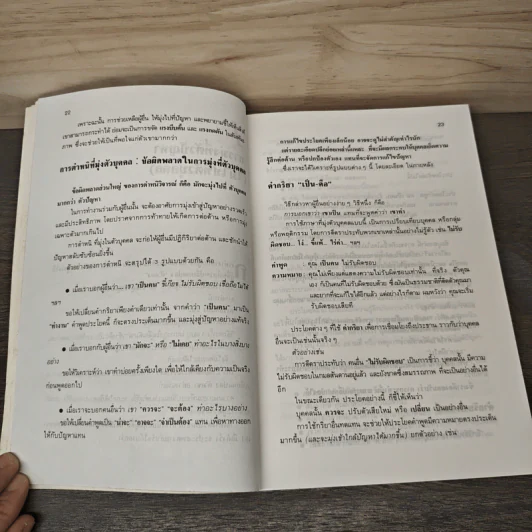 22
เพราะฉะนั้น การช่วยเหลือผู้อื่น ให้มุ่งไปที่ปัญหา และพยายามชี้ให้เห็นสิ่งที่
เขาสามารถกระทำได้ ย่อมจะเป็นการขจัด แรงบีบคั้น และ แรงกดดัน ในสัมพันธ
ภาพ ซึ่งจะช่วยให้เป็นที่พอใจแก่ตัวเขามากกว่า
การตำหนิที่มุ่งตัวบุคคล : ข้อผิดพลาดในการมุ่งที่ตัวบุคคล
ข้อผิดพลาดส่วนใหญ่ ของการตำหนิวิจารณ์ ก็คือ มักจะมุ่งไปที่ ตัวบุคคล
มากกว่า ตัวปัญหา
ในการทำงานร่วมกับผู้อื่นนั้น จะต้องอาศัยการมุ่งเข้าสู่ปัญหาอย่างรวดเร็ว
และมีประสิทธิภาพ โดยปราศจากการทำทายให้เกิดการต่อต้าน หรือการมุ่ง
เฉพาะตัวมากเกินไป
การตำหนิ ที่มุ่งในตัวบุคคล จะก่อให้ผู้อื่นมีปฏิกิริยาต่อต้าน และชักนำให้
ปัญหาสลับซับซ้อนยิ่งขึ้น
ตัวอย่างของการตำหนิ จะสรุปได้ 3 รูปแบบด้วยกัน คือ
● เมื่อเราบอกผู้อื่นว่า... เขา "เป็นคน" ขี้เกียจ ไม่รับผิดชอบ เชื่อถือไม่ได้
ฯลฯ
ขอให้เปลี่ยนคำกริยาเพียงคำเดียวเท่านั้น จากคำว่า "เป็นคน" มาเป็น
"ทำงาน" คำพูดประโยคนี้ ก็จะตรงประเด็นมากขึ้น และมุ่งสู่ปัญหาอย่างแท้จริง
● เมื่อเราบอกกับผู้อื่นว่า เขา "มักจะ" หรือ "ไม่เคย" ทำอะไรในบางสิ่งบาง
อย่าง
ขอให้วิเคราะห์ว่า เขาทำบ่อยครั้งเพียงใด เพื่อให้ใกล้เคียงกับความเป็นจริง
ก่อนพูดออกไป
● เมื่อเราจะบอกคนอื่นว่า เขา "ควรจะ" "จะต้อง" ทำอะไรบางอย่าง
ขอให้เปลี่ยนคำพูดเป็น "น่าจะ" "อาจจะ" "จำเป็นต้อง" แทน เพื่อหาทางออก
ให้กับปัญหาแทน
23
การแก้ไขประโยคเพียงเล็กน้อย อาจจะดูไม่สำคัญเท่าไรนัก
แต่รายละเอียดปลีกย่อยเหล่านี้แหละ ที่จะมีผลกระทบให้บุคคลเกิดความ
รู้สึกต่อต้าน หรือปกป้องตัวเอง แทนที่จะจัดการแก้ไขปัญหา
ซึ่งเราจะได้วิเคราะห์รูปแผนต่าง ๆ นี้ โดยละเอียด ในภายหลัง
คำกริยา "เป็น-คือ"
วิธีกล่าวหาผู้อื่นง่าย ๆ วิธีหนึ่ง ก็คือ
การบอกเขาว่า เขาเป็น แทนที่จะพูดคำว่า เขาทำ
การใช้ภาษาที่มุ่งตัวบุคคลแบบนี้ เป็นการเปรียบเทียบบุคคล หรือกลุ่ม
หรือพฤติกรรม โดยการตีตราประทับพวกเขาเหล่านั้นอย่างไม่รู้ตัว เช่น ไม่รับ
ผิดชอบ... โง่... ขี้แพ้... ไร้ค่า... ฯลฯ
คำพูด : คุณ เป็นคน ไม่รับผิดชอบ
ความหมาย : คุณไม่เพียงแต่แสดงความไม่รับผิดชอบเท่านั้น ที่จริง ตัวคุณ
เอง ก็เป็นคนที่ไม่รับผิดชอบด้วย มันเป็นธรรมชาติที่ติดตัวคุณมา
และยากที่จะแก้ไขได้อีกแล้ว แต่อย่างไรก็ตาม ผมหวังว่า คุณจะเริ่ม
รับผิดชอบเสียที
ประโยคต่าง ๆ ที่ใช้ คำกริยา เพื่อการเชื่อมโยงถึงประธาน ราวกับว่าบุคคล
อื่นจะเป็นเช่นนั้นจริง ๆ
ตัวอย่างเช่น
การตีตราประทับว่า คนอื่น "ไม่รับผิดชอบ" เป็นการชี้ว่า บุคคลนั้น มีความ
ไม่รับผิดชอบในกมลสันดานอยู่แล้ว และยังขาดซึ่งสมรรถภาพ ที่จะเป็นอย่างอื่นได้
อีก
ในขณะเดียวกัน ประโยคอย่างนี้ ก็ชี้ให้เห็นว่า
บุคคลนั้น ควรจะ ปรับตัวเสียใหม่ หรือ เปลี่ยน เป็นอย่างอื่น
การใช้กริยาอื่นทดแทน จะช่วยให้ประโยคคำพูดมีความหมายตรงประเด็น
มากขึ้น (และจะมุ่งเข้าใกล้ปัญหาให้มากขึ้น) ยกตัวอย่าง เช่น